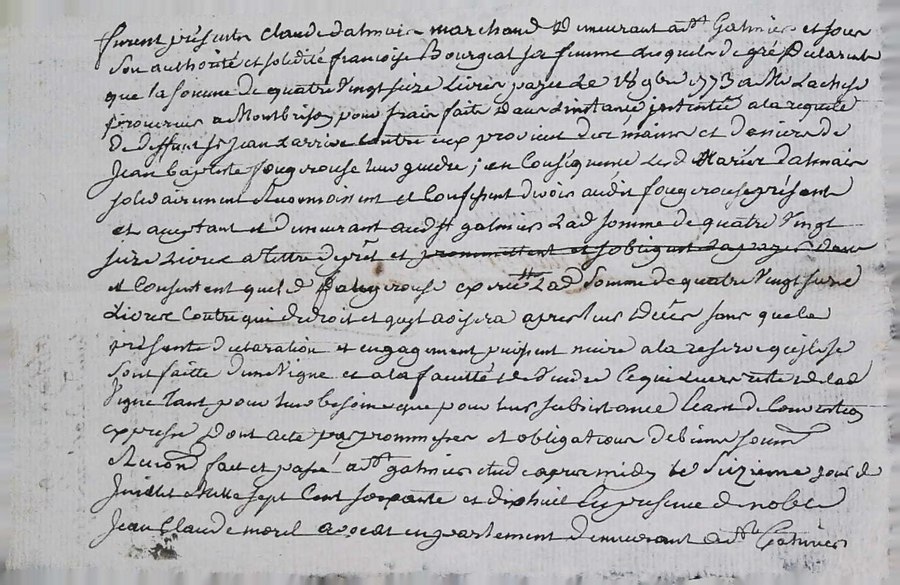 furent présents Claude dalmais marchand Demeurant a St Galmier et sous
Son authorité et solidité francoise Bourgeat sa femme lesquels de gré Déclarent
que la somme de quatre Vingt seize Livres payée le 18 9bre 1773 a Me Lachese
procureur a Montbrison pour frais faits Dans L'instance intentée a la requete
de deffunt Sr Jean Larrive contre eux provient des mains et deniers de
Jean Baptiste fougerouse leur gendre ; en Conséquence Lesd Mariés dalmais
solidairement reconnoissent et Confessent devoir audit fougerouse présent
et acceptant et demeurant audit St galmier Lad somme de quatre Vingt
seize Livres a tittre de prêt et promettent et s'obligent la payer dans
et Consentent que led fougerouse Lad Somme de quatre Vingt seize
Livres Contre qui de droit et quil avisera apres leurs Décès sans que la
présente declaration et engagement puissent nuire a la reserve quils se
sont faitte d'une Vigne et a la faculté de Vendre Ce qui leurs reste de lad
Vigne tant pour leur besoins que pour leur subsistance Ceant de Convention
expresse Dont acte par promesses et obligations de biens soum
et renon fait et passé a St galmier etude apres midy le seizieme jour de
Juillet Mille sept Cent soixante et dixhuit En presence de noble
Jean Claude morel avocat en parlement demeurant a St Galmier